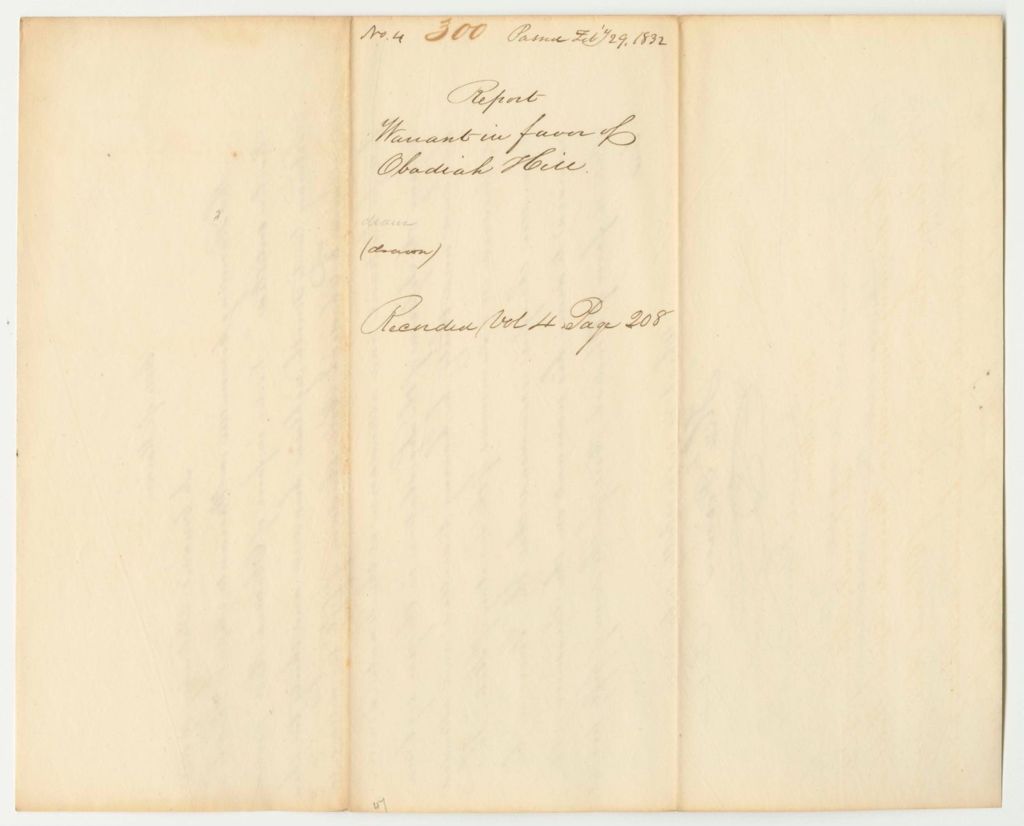 No. 4 300 Passed Feby 29, 1832
Report
Warrant in favor of
Obadiah Hill.
drawn
(drawn)
Recorded Vol 4 Page 208